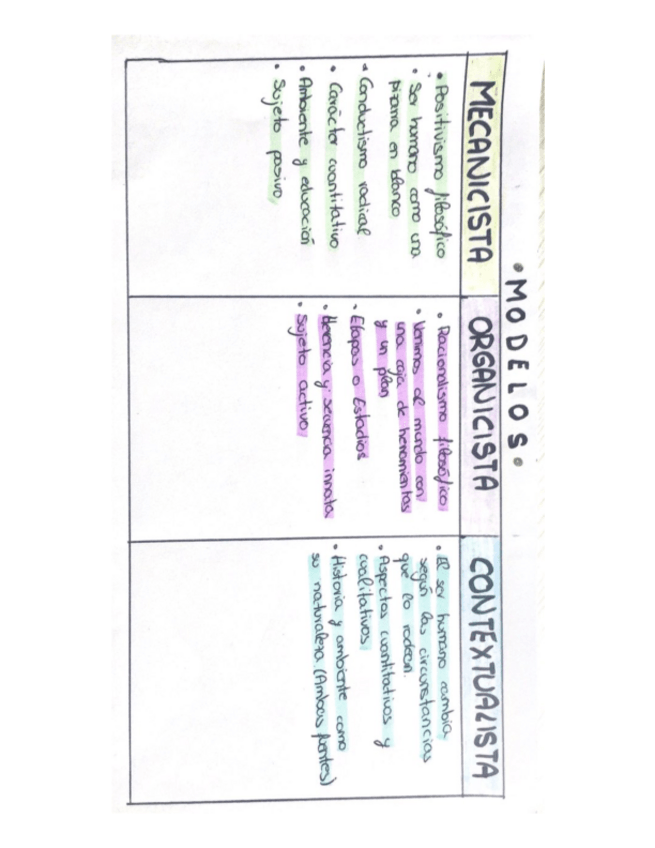 • MODELOS •
MECANICISTA
• Positivismo filosófico
• Ser humano como una
pizarra en blanco
• Conductismo radical
• Carácter cuantitativo
• Ambiente y educación
• Sujeto pasivo
ORGANICISTA
• Racionalismo filosófico
• Venimos al mundo con
una caja de herramientas
y un plan
• Etapas o Estadios
• Herencia y secuencia innata
• Sujeto activo
CONTEXTUALISTA
• El ser humano cambia
según las circunstancias
que lo rodean.
• Aspectos cuantitativos y
cualitativos
• Historia y ambiente como
su naturaleza (Ambas fuentes)